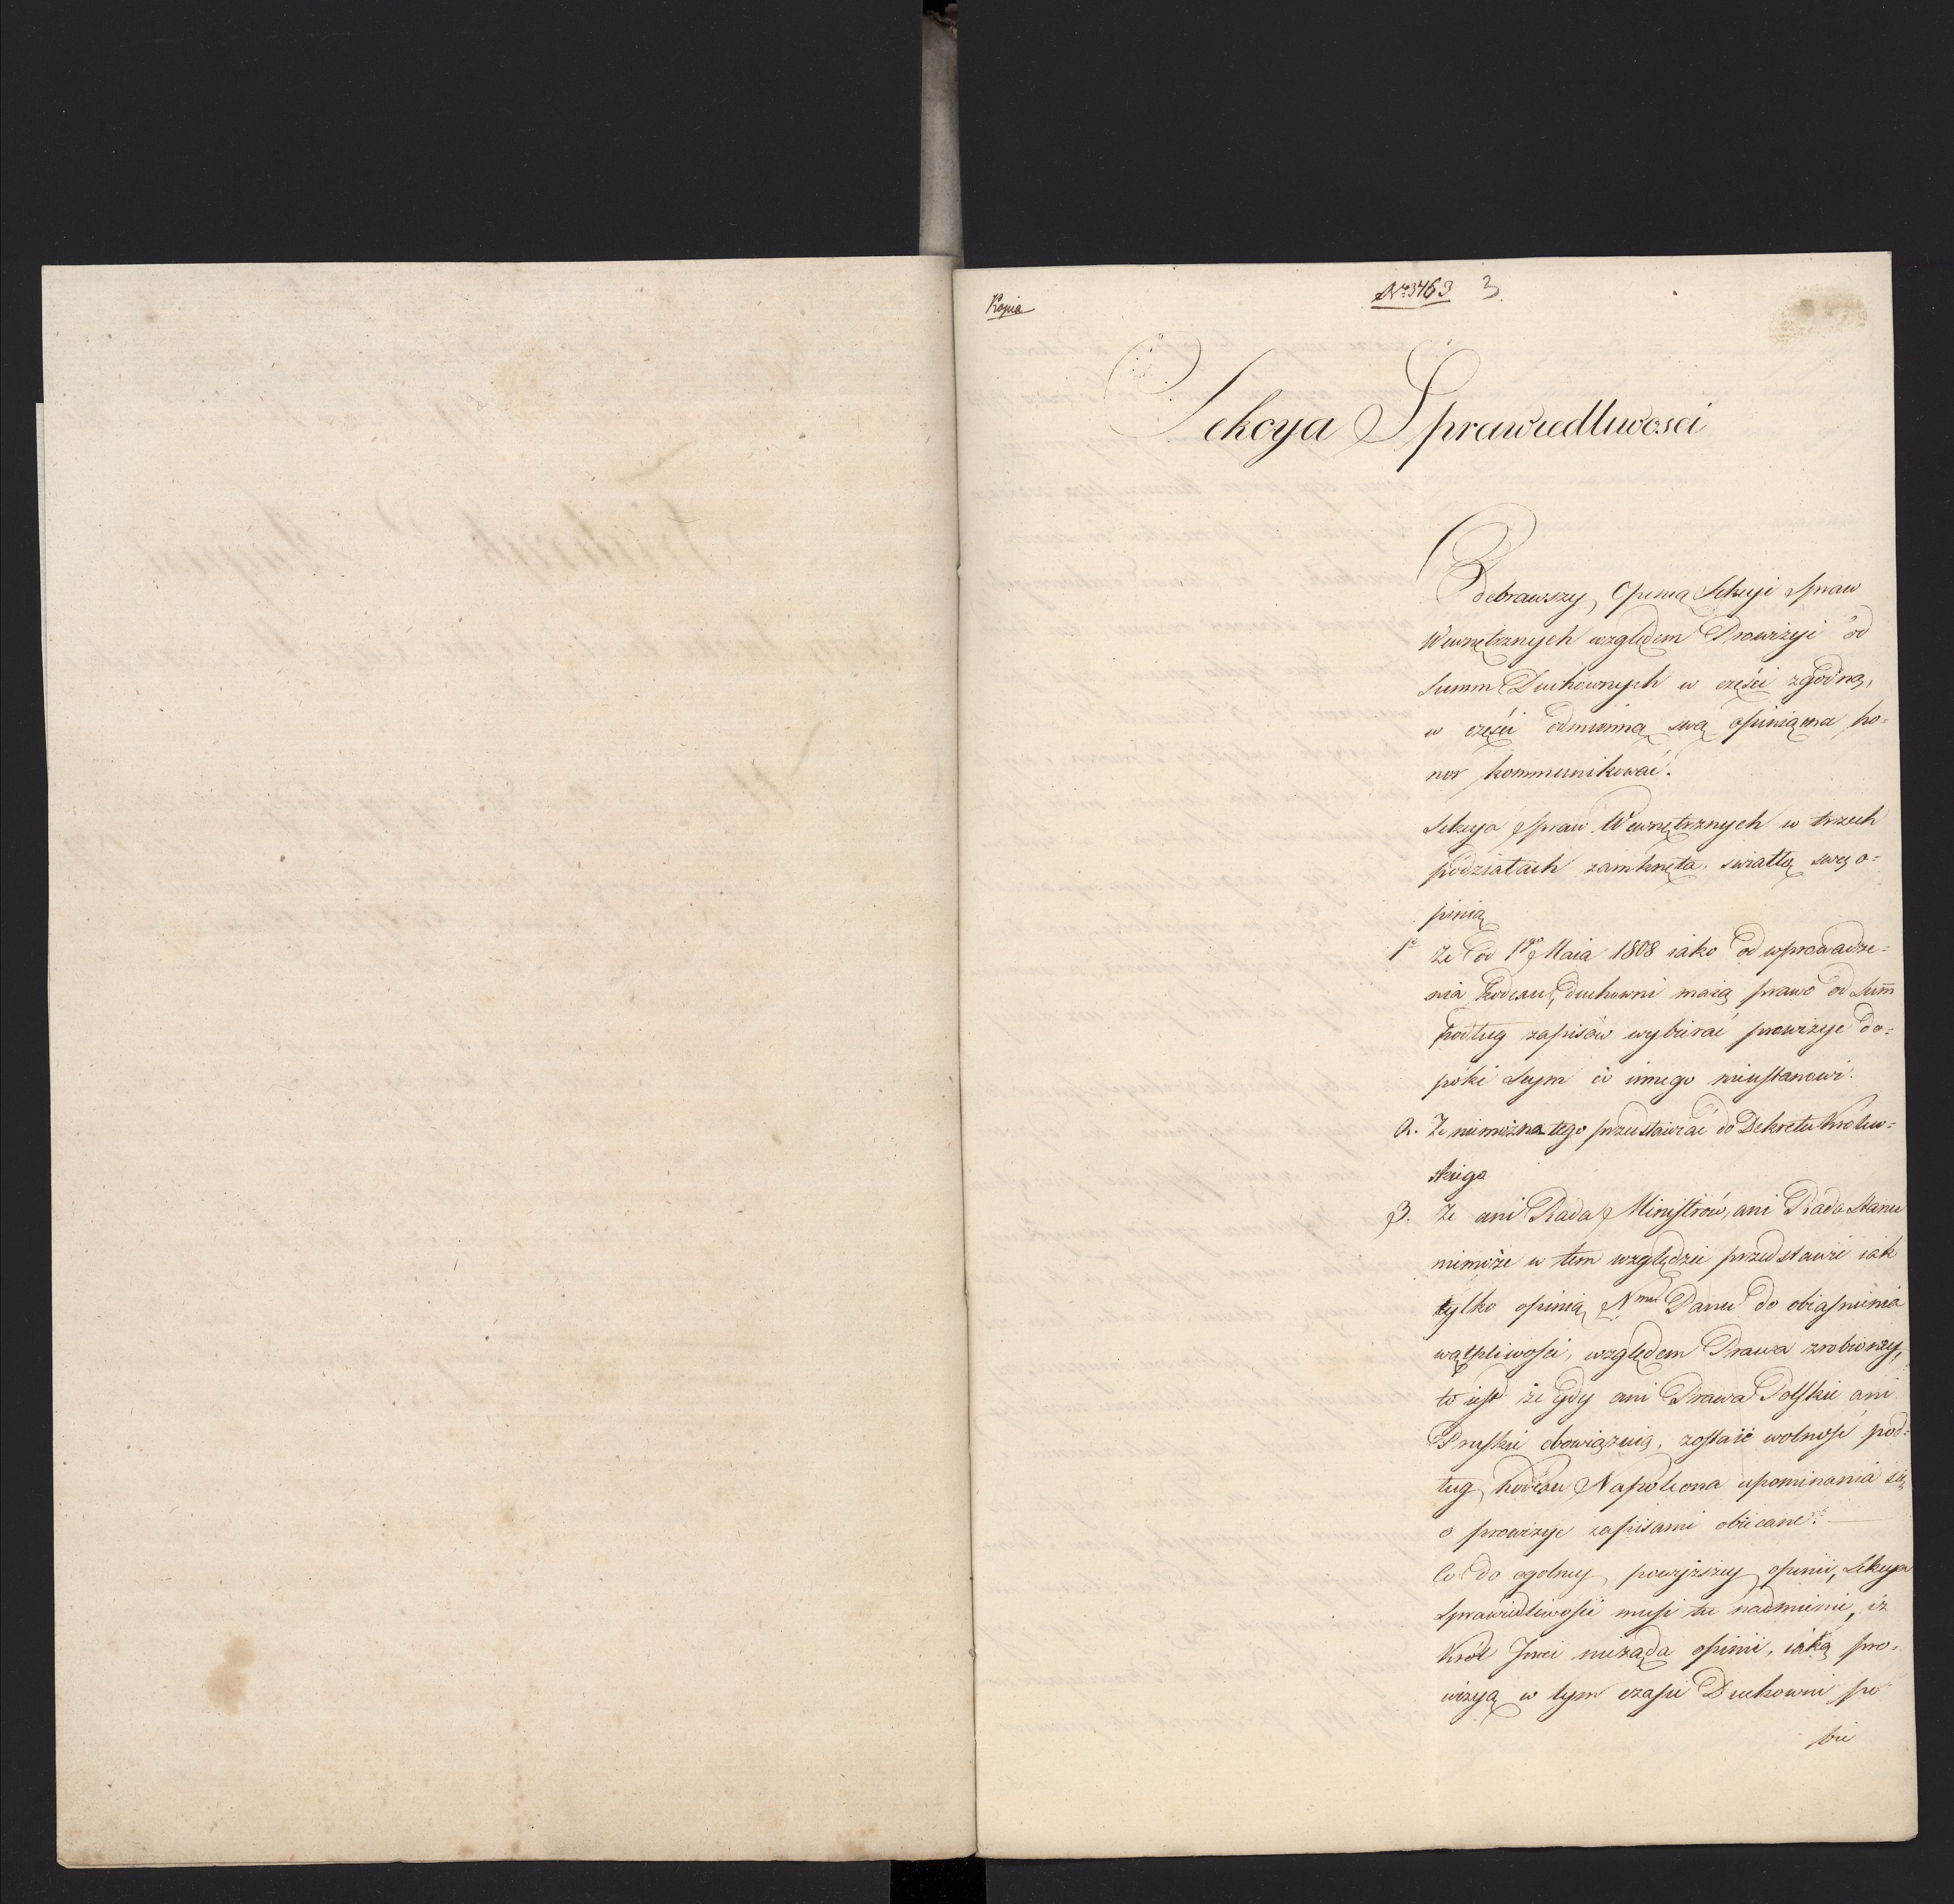 Kopia
No 3763 3.
Sekcya Sprawiedliwosci
Odebrawszy Opinią Sekcyi Spraw
Wewnętrznych względem Prowizyi od
Summ Duchownych w częśći zgodną,
w częśći odmienną swą opinią ma ho=
nor kommunikować.
Sekcya Spraw Wewnętrznych w trzech
podziałach zamknęła swiatłą swą o=
pinią
1e Że od 1go Maia 1808 iako od wprowadze=
nia Kodexu, duchowni maią prawo od Sum̄
podług zapisów wybierać prowizye do=
póki Seym co innego nieustanowi.
2. Że niemożna tego przedstawiać do Dekretu Królew=
skiego
3. Że ani Rada Ministrów, ani Rada Stanu
niemoże w tem względzie przedstawić iak
tylko opinią Nmu Panu do obiasnienia
wątpliwośći, względem Prawa zrobioney,
to iest że gdy ani Prawa Polskie ani
Pruskie obowiązuią, zostaie wolność pod=
ług Kodexu Napoleona upominania się
o prowizye zapisami obiecane. —
Co do ogolney powyższey opinii, Sekcya
Sprawiedliwości musi tu nadmienić, iż
Król Jmci nieżąda opinii, iaką pro=
wizyą w tym czasie Duchowni po
bie